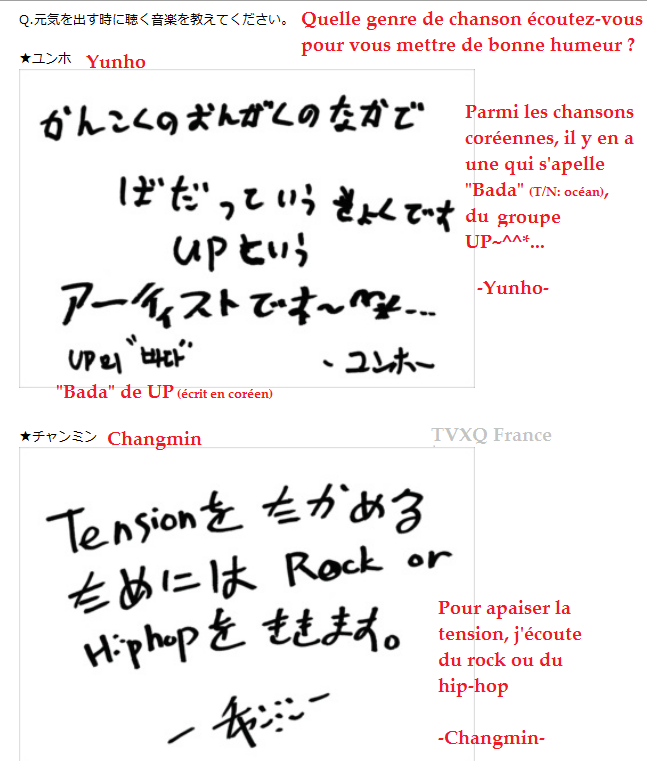 Q.元気を出す時に聴く音楽を教えてください。
Quelle genre de chanson écoutez-vous
pour vous mettre de bonne humeur ?
★ユンホ
Yunho
かんこくのおんがくのなかで
ばだっていうきょくです
UPという
アーティストです〜^^*...
UP의 "바다"
- ユンホー
Parmi les chansons
coréennes, il y en a
une qui s'apelle
"Bada" (T/N: océan),
du groupe
UP~^^*...
-Yunho-
"Bada" de UP (écrit en coréen)
★チャンミン
Changmin
TVXQ France
Tensionを たかめる
ためには Rock or
Hiphopを ききます。
- チャンミン -
Pour apaiser la
tension, j'écoute
du rock ou du
hip-hop
-Changmin-